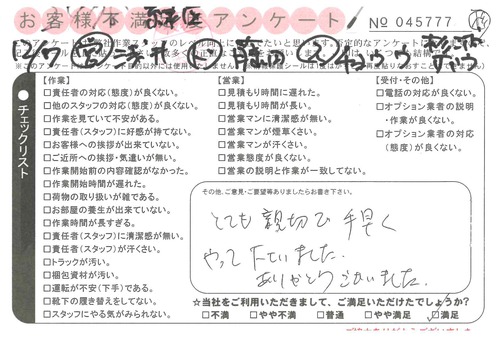 お客様不満 アンケート
No 045777
チェックリスト
【作業】
□責任者の対応(態度)が良くない。
□他のスタッフの対応(態度)が良くない。
□作業を見ていて不安がある。
□責任者(スタッフ)に好感が持てない。
□お客様への挨拶が出来ていない。
□ご近所への挨拶・気遣いが無い。
□作業開始前の内容確認がなかった。
□作業開始時間が遅れた。
□荷物の取り扱いが雑である。
□お部屋の養生が出来ていない。
□作業時間が長すぎる。
□責任者(スタッフ)に清潔感が無い。
□責任者(スタッフ)が汗くさい。
□トラックが汚い。
□梱包資材が汚い。
□運転が不安(下手)である。
□靴下の履き替えをしてない。
□スタッフにやる気がみられない。
【営業】
□見積もり時間に遅れた。
□見積もり時間が長い。
□営業マンに清潔感が無い。
□営業マンが煙草くさい。
□営業マンが汗くさい。
□営業態度が良くない。
□営業の説明と作業が一致してない。
【受付・その他】
□電話の対応が良くない。
□オプション業者の説明
・作業が良くない。
□オプション業者の対応
(態度)が良くない。
その他、ご意見・ご要望等ありましたらお書き下さい。
とても親切で手早く
やって下さいました。
ありがとうございました。
☆当社をご利用いただきまして、ご満足いただけたでしょうか?
□不満 □やや不満 □普通 □やや満足 □満足